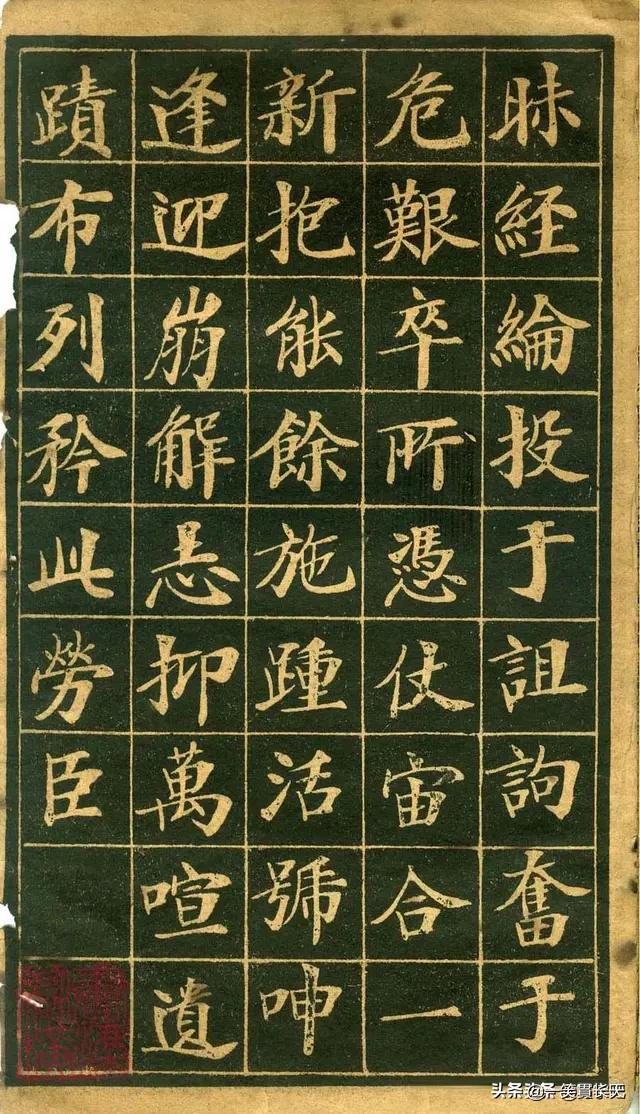 昧經綸投于詛訽奮于
危艱卒所憑仗宙合一
新抱能餘施踵活號呻
逢迎崩解恶抑萬喧遺
蹟布列矜此勞臣
头条 @一笑貫佧吧